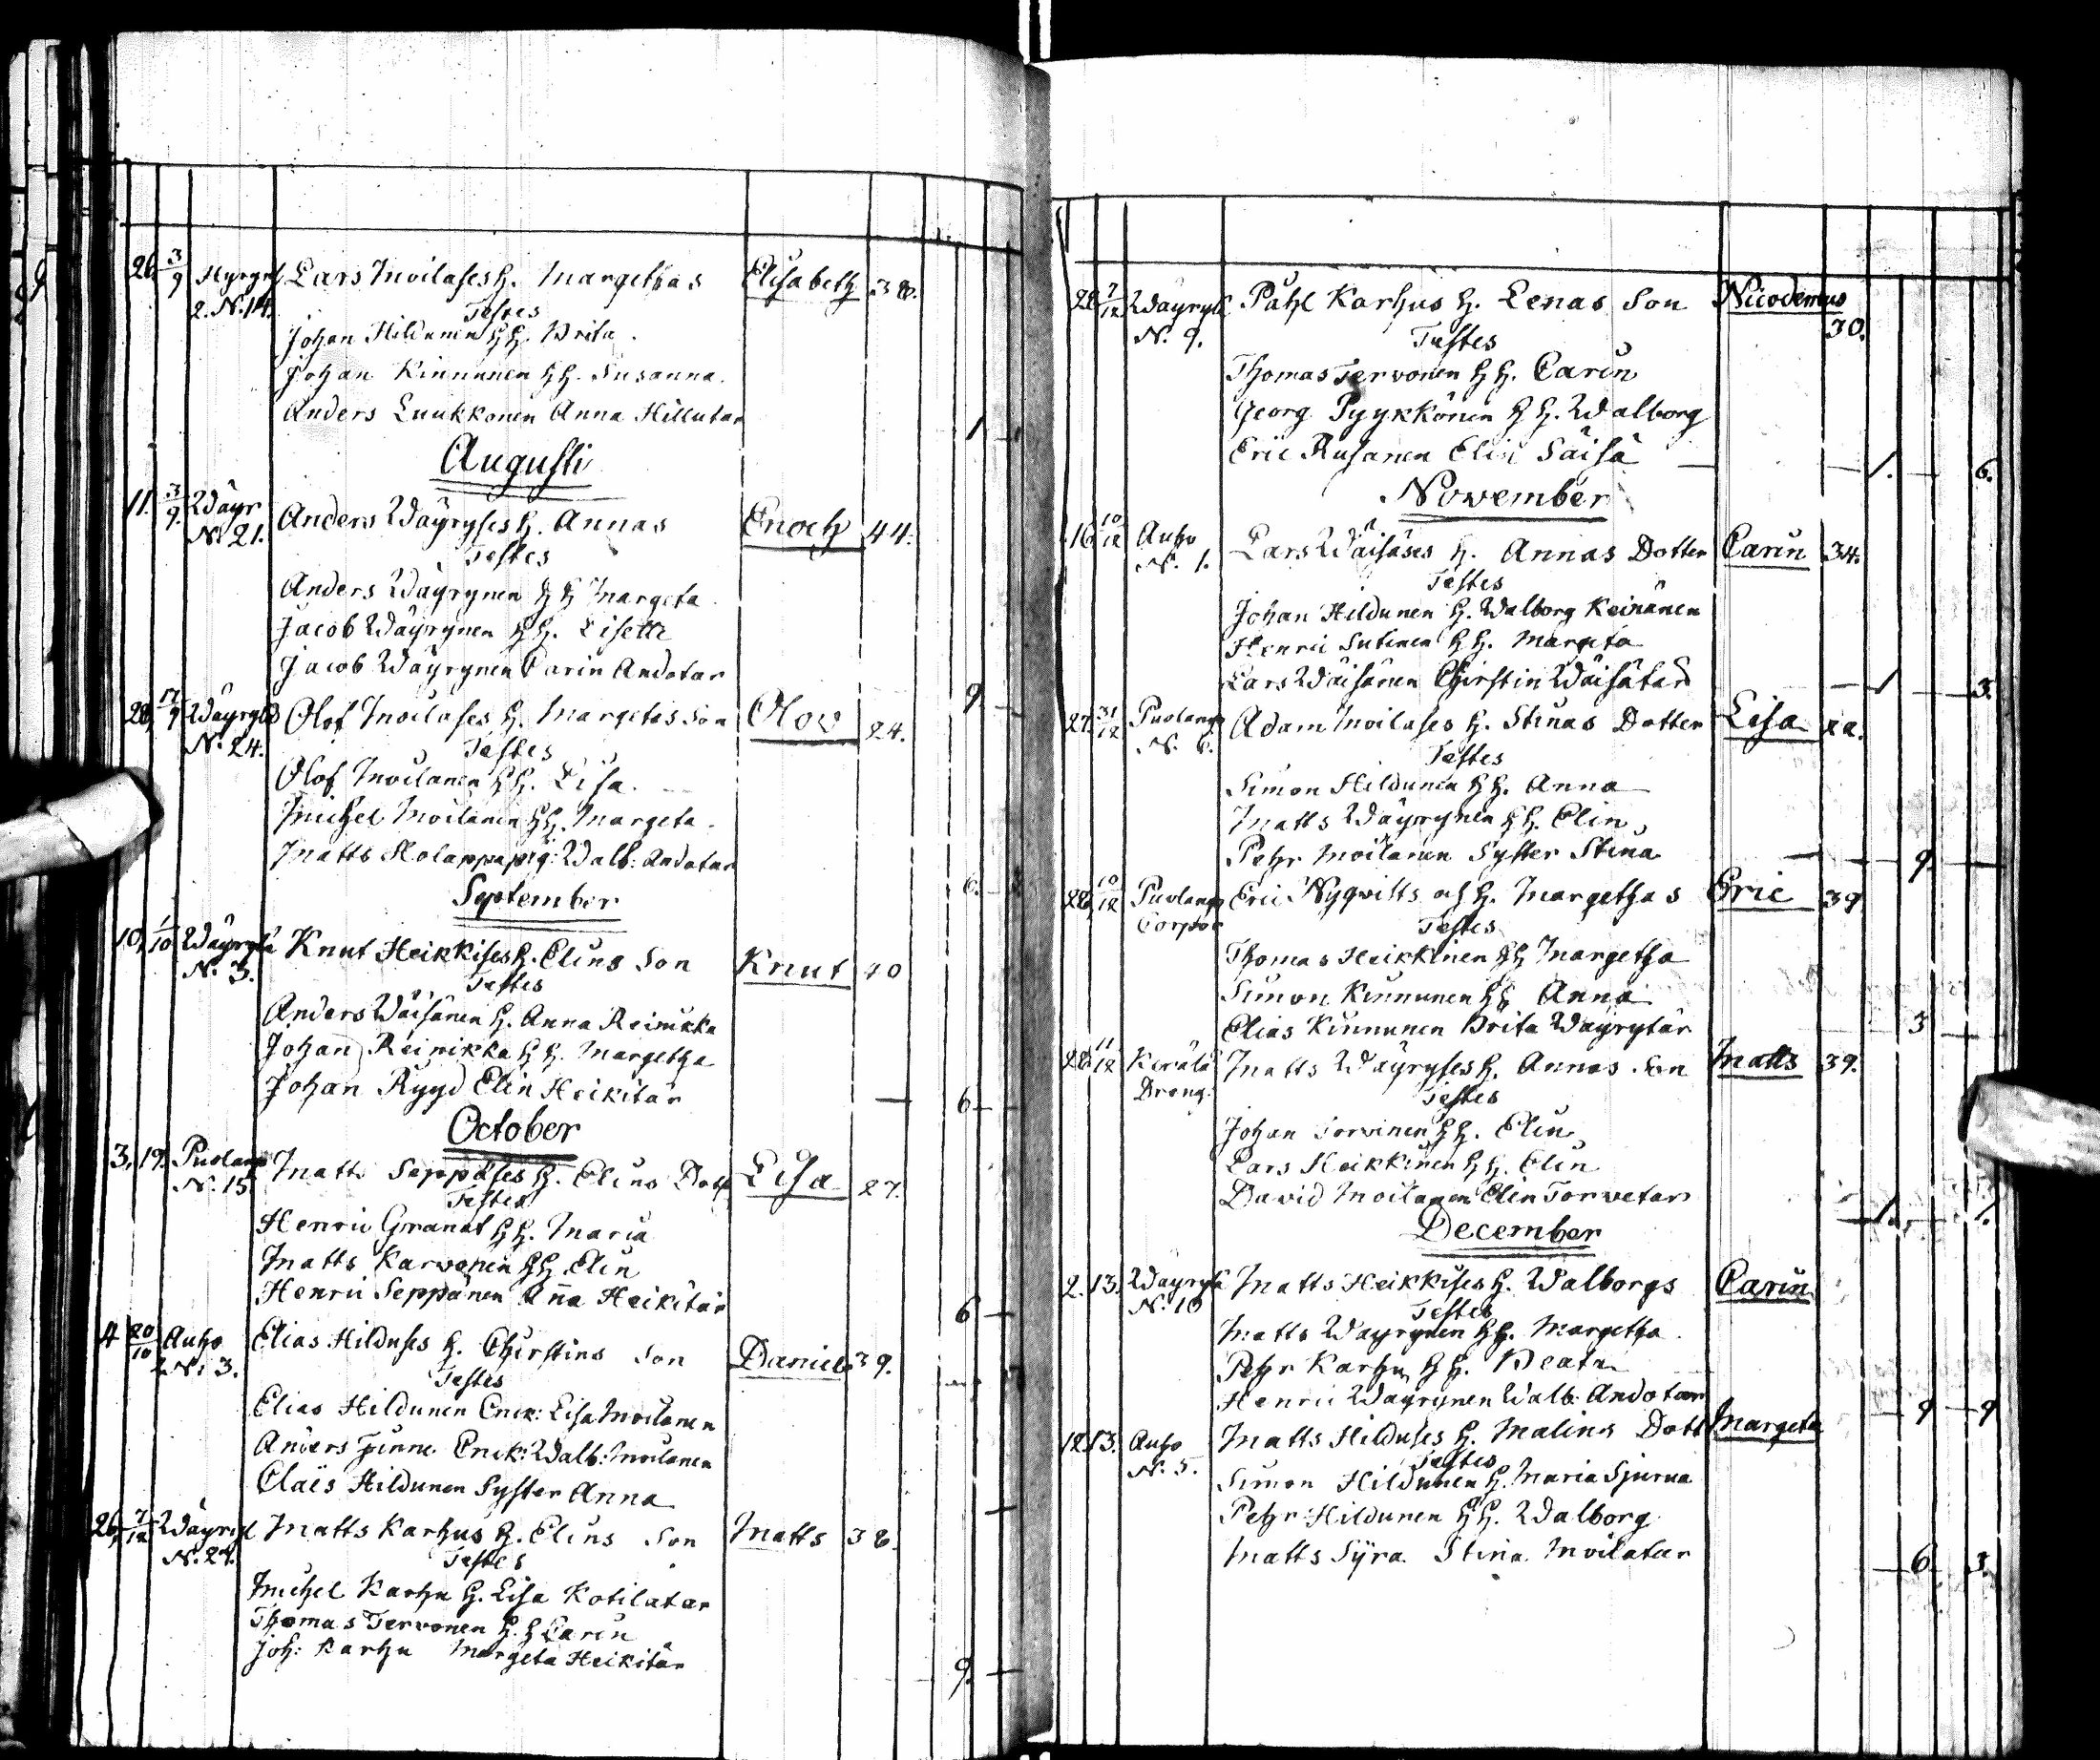 26 3/9 Hyryns Lars Moilases h. Margethas Elisabeth 38.
2. N. 14. Testes
Johan Hildunen h h. Brita.
Johan Kinnunen h h. Susanna.
Anders Luukkonen Anna Hillutar
1
Augusti
11. 3/9. Wäyr Anders Wäyryses h. Annas Enoch 44.
N. 21. Testes
Anders Wäyrynen h h Margeta
Jacob Wäyrynen h h. Lisette
Jacob Wäyrynen Carin Andotar
9
28, 17/9 Wäyryl Olof Moilases h. Margetas Son Olov 24.
N. 24. Testes
Olof Moilanen h h. Lisa.
Michel Moilanen h h. Margeta.
Matts Holappa pig: Walb: Andotar
6.
September
10, 1/10 Wäyrylä Knut Heikkises h. Elins Son Knut 40
N. 3. Testes
Anders Wäisänen h. Anna Reinikka
Johan Reinikka h h. Margetha
Johan Rygd Elin Heikitär
6
October
3, 19. Puolang Matts Seppäses h. Elins Dott Lisa 27.
N. 15 Testes
Henric Granat h h. Maria
Matts Karvonen h h. Elin
Henric Seppänen Aña Heikitär
6
4 20/10 Auho Elias Hilduses h. Christins Son Daniel 39.
2 N: 3. Testes
Elias Hildunen Enk: Lisa Moilanen
Anders Juune Enck: Walb: Moilanen
Claës Hildunen Syster Anna
26, 7/12 Wäyryl Matts Karhus h. Elins Son Matts 38.
N. 27. Testes
Michel Karhu h. Lisa Kotilatar
Thomas Tervonen h. h Carin
Joh: Karhu Margeta Heikitär
9.
28 7/12 Wäyryl Påhl Karhus h. Lenas Son Nicodemus
N. 9. Testes 30.
Thomas Tervonen h h. Carin
Georg Pyykkönen h h. Walborg
Eric Rusanen Elin Säisä
1. 6.
November
16 10/12 Auho Lars Wäisäses h. Annas Dotter Carin 34.
N. 1. Testes
Johan Hildunen h. Walborg Keinänen
Henric Sutinen h h. Margeta
Lars Wäisänen Christin Wäisätär
1 3.
27. 31/12 Puolang Adam Moilases h. Stinas Dotter Lisa 22.
N. 6. Testes
Simon Hildunen h h. Anna
Matts Wäyrynen h h. Elin
Pehr Moilanen Syster Stina
9.
28, 10/12 Puolang Eric Nyqvists och h. Margethas Eric 39
Corpor Testes
Thomas Heikkinen h h Margetha
Simon Kinnunen h h Anna
Elias Kinnunen Brita Wäyrytär
3
28 11/12 Kerälä Matts Wäyryses h. Annas Son Matts 39.
Dreng. Testes
Johan Torvinen h h. Elin
Lars Heikkinen h h. Elin
David Moilanen Elin Torvetar
1. 1.
December
2. 13. Wäyrylä Matts Heikkises h. Walborgs Carin
N. 10 Testes
Matts Wäyrynen h h. Margetha.
Pehr Karhu h h. Beata
Henric Wäyrynen Walb. Andotar
9 9
12 13. Auho Matts Hilduses h. Malins Dott Margeta
N. 5. Testes
Simon Hildunen h. Maria Sjurna
Pehr Hildunen h h. Walborg
Matts Syra. Stina Moilatar
6 3.